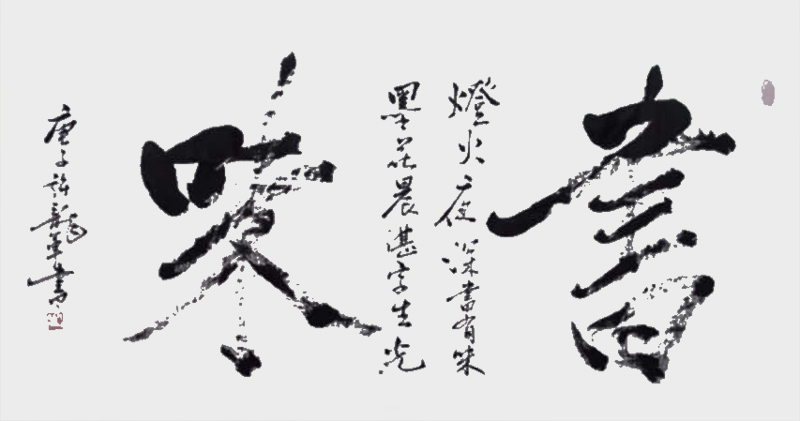 書
燈火夜深書有味
墨花晨湛字生光
味
庚子許龍軍書